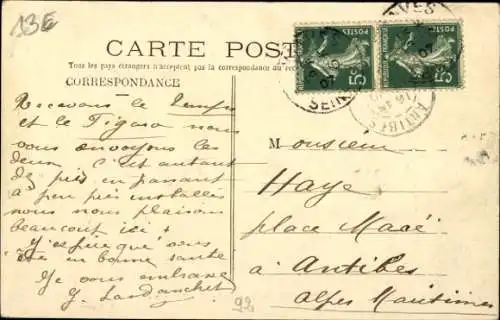 13E
CARTE POST
Tous les pays étrangers n'acceptent pas la correspondance au rec
CORRESPONDANCE
Recevons le Temps
et le Figaro nous
vous envoyons les
deux c'est autant
de pris en passant
à peu près installés
nous nous plaisons
beaucoup ici +
J'espère que vous
êtes en bonne santé
Je vous embrasse
Monsieur
Haye
place Macé
à Antibes
Alpes Maritimes
POSTES
5
POSTES
5
VANVES
SEINE
ANTIBES
92